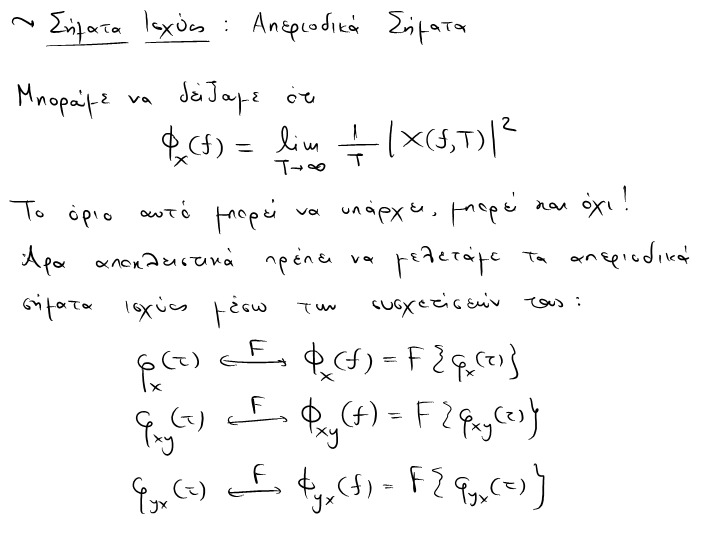 ~ Σήματα Ισχύος : Απεριοδικά Σήματα
Μπορούμε να δείξουμε ότι
Φx(f) = lim T→∞ 1/T |X(f,T)|²
Το όριο αυτό μπορεί να υπάρχει, μπορεί και όχι!
Άρα αποκλειστικά πρέπει να μελετάμε τα απεριοδικά
σήματα ισχύος μέσω των συσχετίσεών τους:
φx(τ) ⟷F Φx(f) = F{φx(τ)}
φxy(τ) ⟷F Φxy(f) = F{φxy(τ)}
φyx(τ) ⟷F Φyx(f) = F{φyx(τ)}